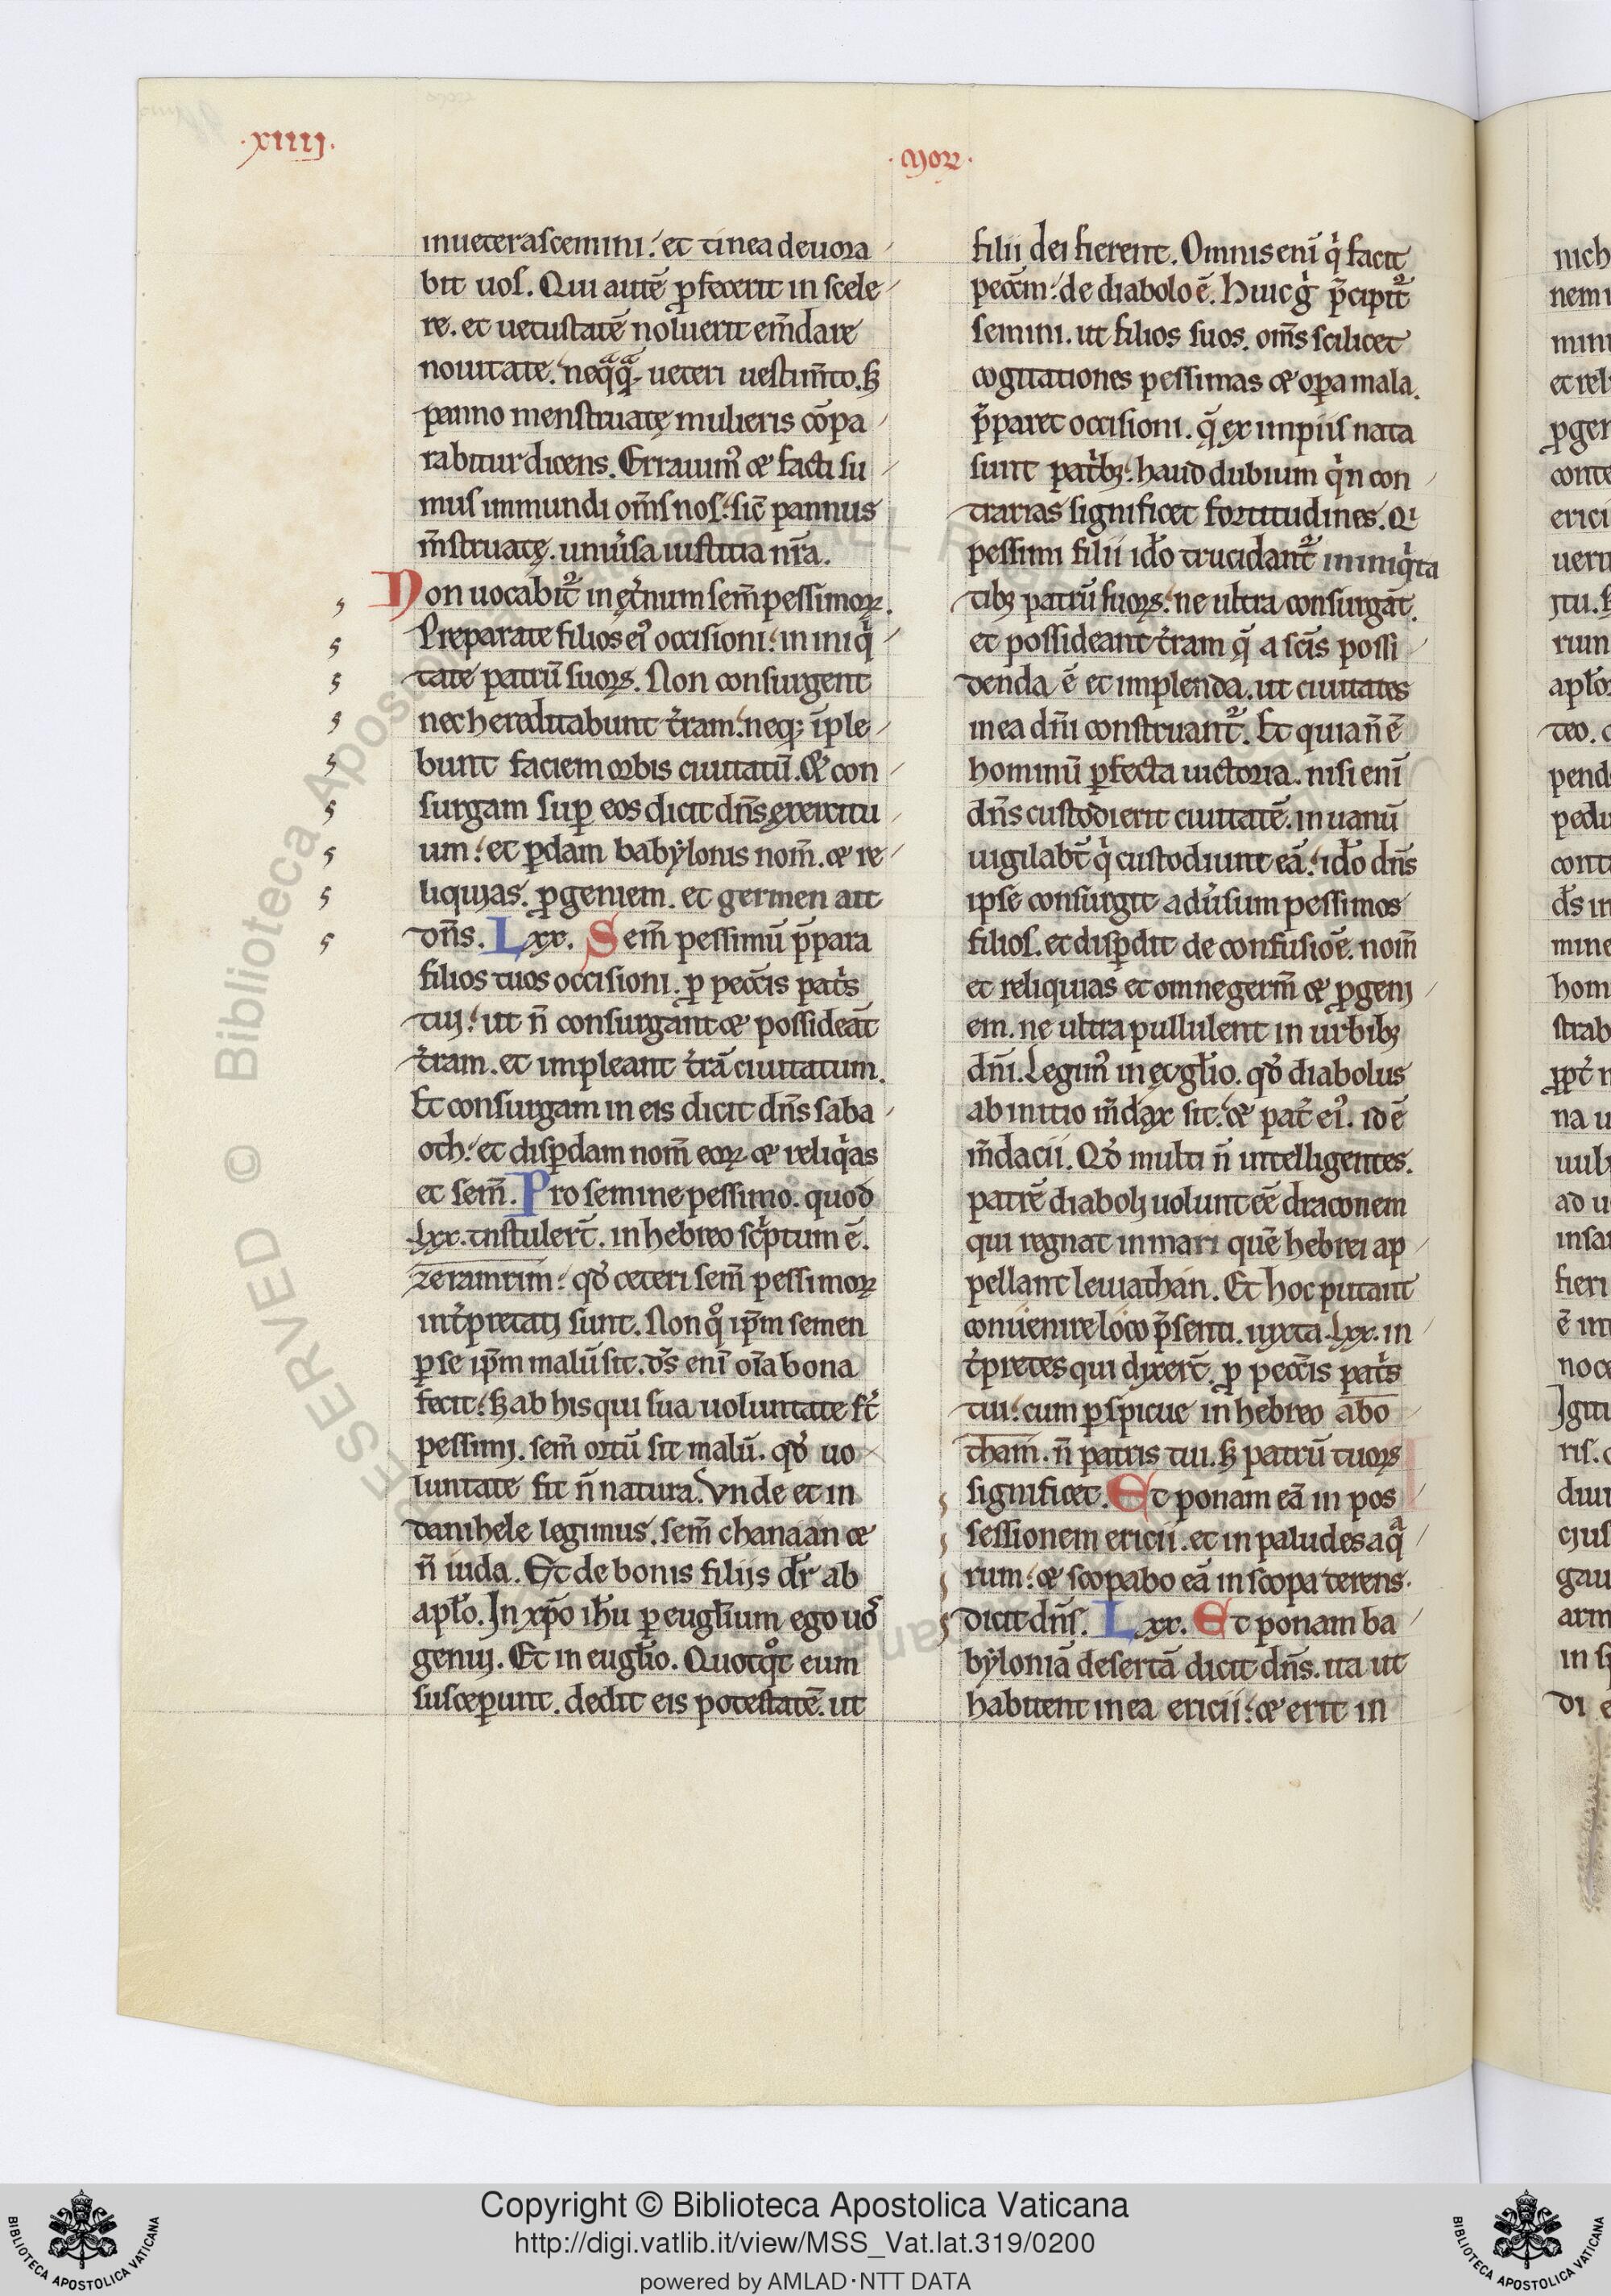 .xiiij.
.Morꝝ.
inueterascemini. et tinea deuora
bit uos. Qui autē ꝓfecerit in scele
re. et uetustatē noluerit em̄dare
nouitate. neqͣqͣ ueteri uestim̄to. ꝫ
panno menstruatę mulieris cōpa
rabitur dicens. Errauimꝰ & facti su
mus inmundi om̄s nos. sic̄ pannus
m̄struatę. uniuͥsa iustitia nr̄a.
Non uocabit᷑ in ęt̓num sem̄ pessimoꝝ.
Preparate filios eiꝰ occisioni. in iniqͥ
tate patrū suoꝝ. Non consurgent
nec hereditabunt t̓ram. neqꝫ īple
bunt faciem orbis ciuitatū. & con
surgam suꝑ eos dicit dn̄s exercitu
um. et ꝑdam babẏlonis nom̄. & re
liquias. ꝓgeniem. et germen ait
dn̄s. Lxx. Sem̄ pessimū p̄para
filios tuos occisioni. ꝓ pecc̄is pat̓s
tui. ut n̄ consurgant & possideāt
t̓ram. et impleant t̓rā ciuitatum.
Et consurgam in eis dicit dn̄s saba
oth. et disꝑdam nom̄ eoꝝ & reliqͥas
et sem̄. Pro semine pessimo. quod
Lxx. tn̄stuler̄t. in hebreo scͥptum ē.
zeramrim. qd̓ ceteri sem̄ pessimoꝝ
int̓pretati sunt. Non qͦ ip̄m semen
ꝑ se ip̄m malū sit. ds̄ eni᷑ oīa bona
fecit. ꝫ ab his qui sua uoluntate st̄
pessimi. sem̄ ortū sit malū. qd̓ uo
luntate fit n̄ natura. Vnde et in
danihele legimus. sem̄ chanaan &
n̄ iuda. Et de bonis filiis dr̄ ab
apl̄o. In xp̄o ih̄u ꝑ eugl̄ium ego uoˢ
genui. Et in eugl̄io. Quotqͦt eum
susceꝑunt. dedit eis potestatē. ut
filii dei fierent. Omnis enī qͥ facit
pecc̄m. de diabolo ē. Huic gͥ p̄cipit᷑
semini. ut filios suos. om̄s scilicet
cogitationes pessimas & oꝑa mala.
p̄paret occisioni. q̄ ex impiis nata
sunt pat̓bꝫ. haud dubium qͥn con
trarias significet fortitudines. Qͥ
pessimi filii id̄o trucidant᷑ in iniqͥta
tibꝫ patrū suoꝝ. ne ultra consurgāt.
et possideant t̓ram q̄ a sc̄is possi
denda ē et implenda. ut ciuitates
in ea dn̄i construant᷑. Et quia n̄ ē
hominū ꝑfecta uictoria. nisi enī
dn̄s custodierit ciuitatē. in uanū
uigilab̄t qͥ custodiunt eā. id̄o dn̄s
ipse consurgit adu̓sum pessimos
filios. et disꝑdit de confusiōe. nom̄
et reliquias et omne germ̄ & ꝓgeni
em. ne ultra pullulent in urbibꝫ
dn̄i. Legimꝰ in eugl̄io. qd̓ diabolus
ab initio m̄dax sit. & pat̓ eiꝰ. id ē
m̄dacii. Qd̓ multi n̄ intelligentes.
patrē diaboli uolunt eē draconem
qui regnat in mari quē hebrei ap
pellant leuiathan. Et hoc putant
conuenire loco p̄senti. iuxta .lxx. in
t̓pretes qui dixer̄t. ꝓ pecc̄is pat̓s
tui. cum ꝑspicue in hebreo abo
tham. n̄ patris tui. ꝫ patrū tuoꝝ
significet. Et ponam eā in pos
sessionem ericii. et in paludes aqͣ
rum. & scopabo eā in scopa terens.
dicit dn̄s. Lxx. Et ponam ba
bẏloniā desertā dicit dn̄s. ita ut
habitent in ea ericii. & erit in
Copyright © Biblioteca Apostolica Vaticana
http://digi.vatlib.it/view/MSS_Vat.lat.319/0200
powered by AMLAD·NTT DATA